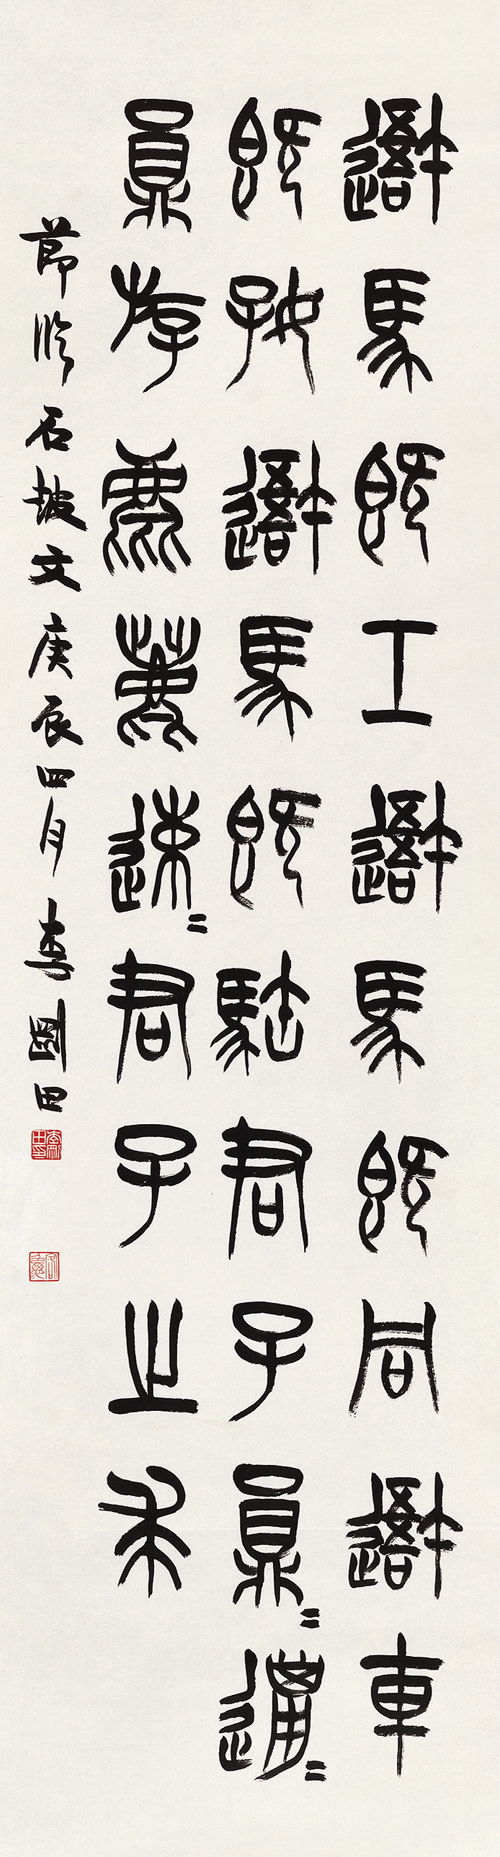 𨖍馬既工𨖍馬既同𨖍車
既好𨖍馬既𩣡君子員=邋=
員斿麀鹿速=君子之求
節臨石鼓文庚辰四月李剛田